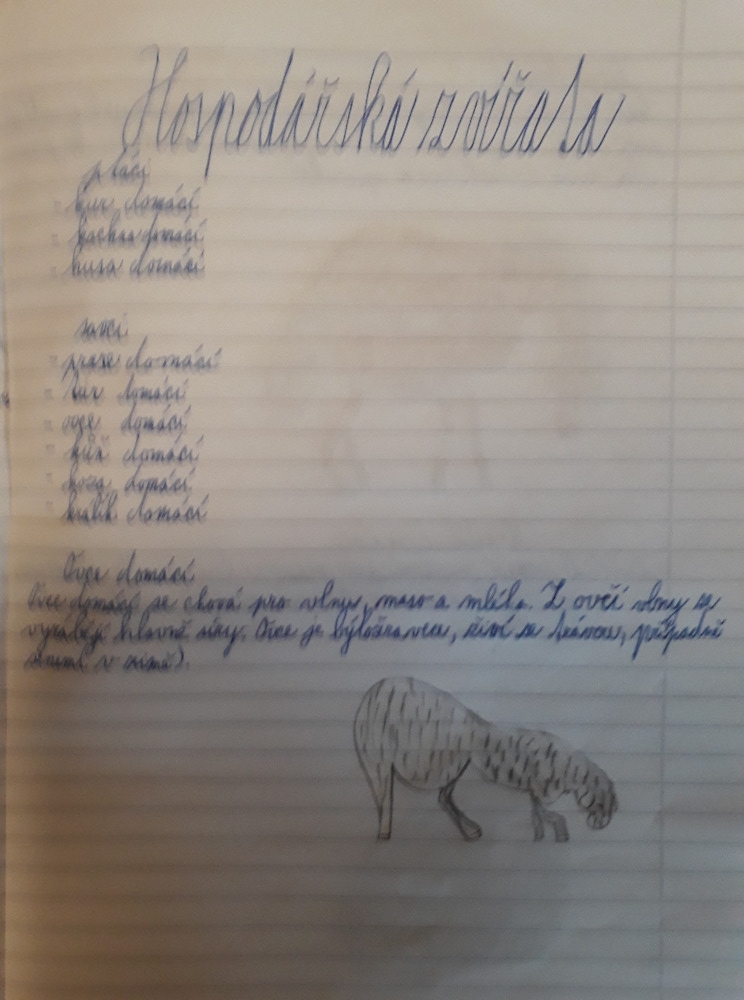 Hospodářská zvířata
ptáci
- kur domácí
- kachna domácí
- husa domácí
savci
- prase domácí
- tur domácí
- ovce domácí
- kůň domácí
- koza domácí
- králík domácí
Ovce domácí
Ovce domácí se chová pro vlnu, maso a mléko. Z ovčí vlny se
vyrábějí hlavně sýry. Ovce je býložravec, živí se trávou, případně
v zimě).